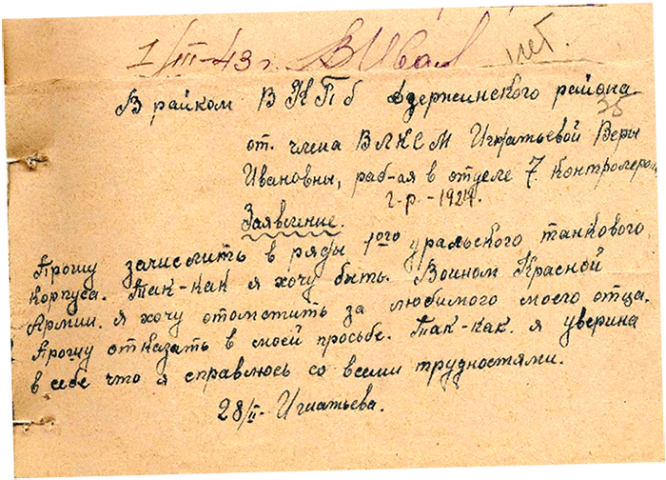 1/III-43 г.
В райком ВКПб Дзержинского района
35
от. члена ВЛКСМ Игнатьевой Веры
Ивановны, раб-ая в отделе 7. контролером
г-р. - 1924.
Заявление.
Прошу зачислить в ряды 1ого уральского танкового
корпуса. Так-как я хочу быть. Воином Красной
Армии. Я хочу отомстить за любимого моего отца.
Прошу отказать в моей просьбе. Так-как. я уверина
в себе что я справлюсь со всеми трудностями.
28/II- Игнатьева.